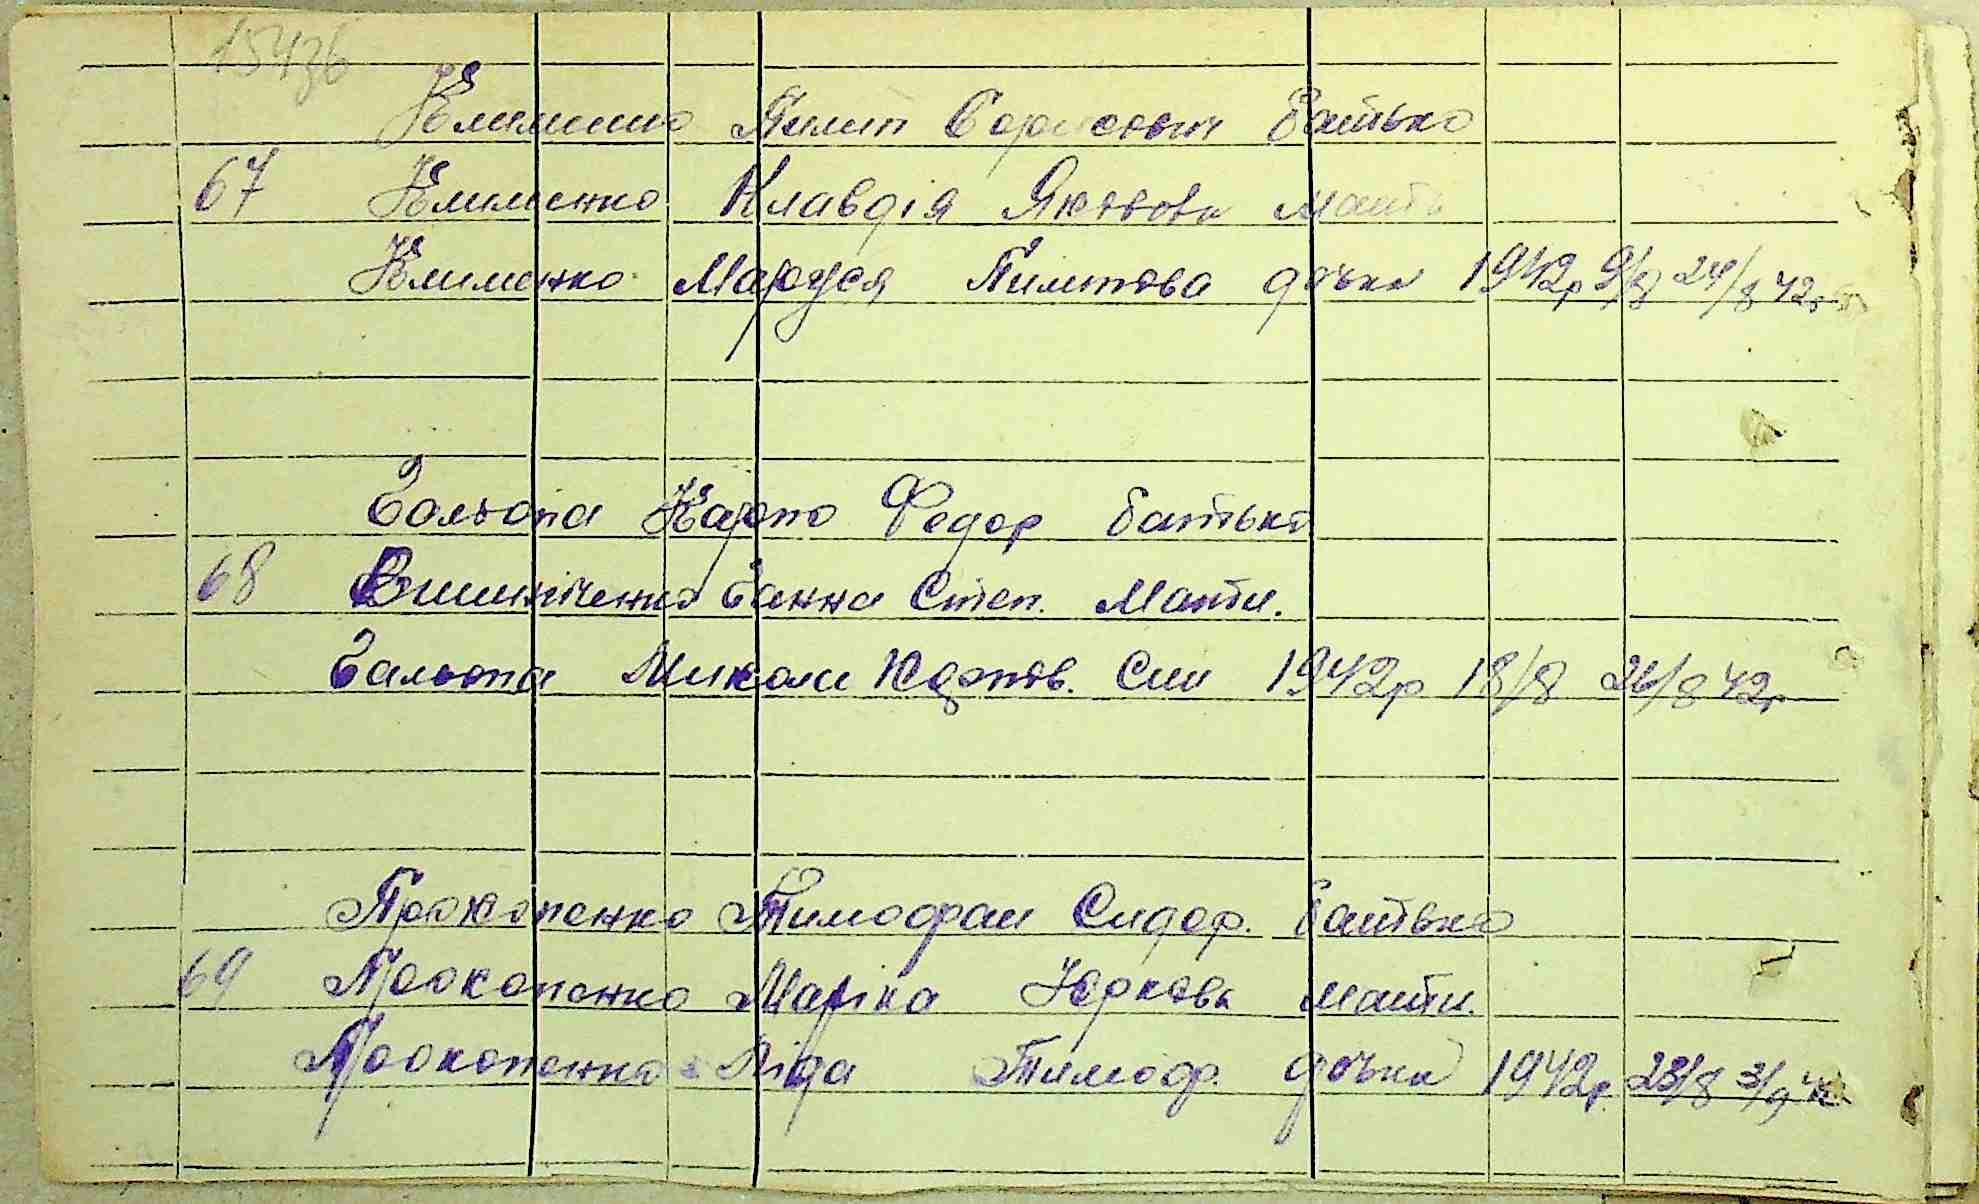 15436
Клименко Пилип Борисович Батько
67 Клименко Клавдія Яковова мати
Клименко Маруся Пилипова дочка 1942р 9/8 24/8 42р
Гальопа Карпо Федор батько
68 Ганна Степ. Мати.
Гальопа Микола Карпов. Син 1942р 18/8 26/8 42р
Прокопенко Тимофай Сидор. Батько
69 Прокопенко Маріка Юркова мати.
Прокопенко Ліда Тимоф. дочка 1942р. 23/8 3/9 42